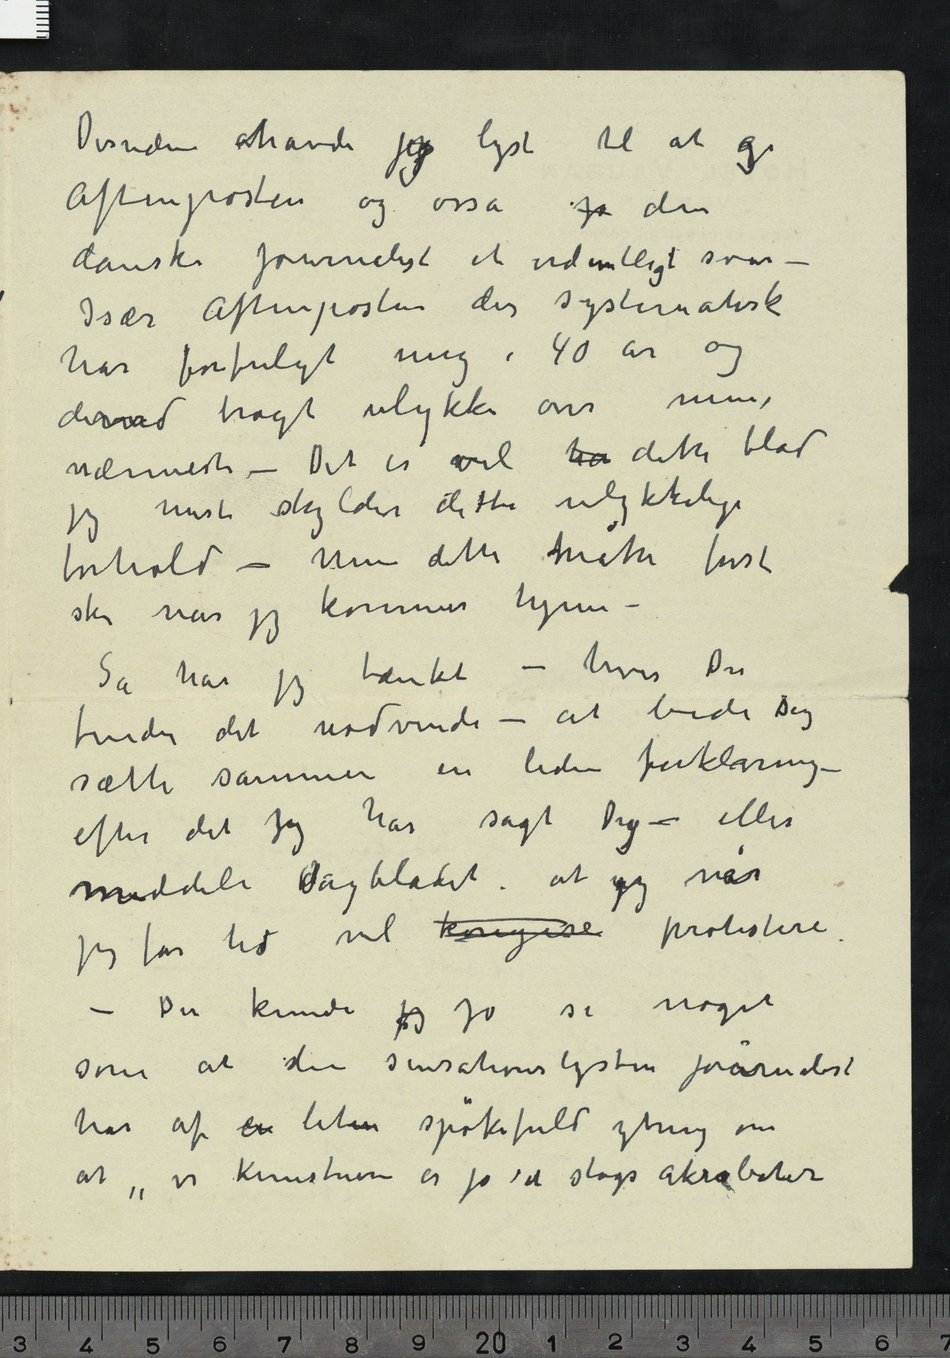 Desuden havde jeg lyst til at gi
Aftenposten og osså den
danske journalist et ordentligt svar –
Især Aftenposten der systematisk
har forfulgt mig i 40 år og
derved bragt ulykke over mine
nærmeste – Det er vel dette blad
jeg mest skylder dette ulykkelige
forhold – Men dette måtte først
ske når jeg kommer hjem –
Så har jeg tænkt – hvis Du
finder det nødvendi – at bede Dig
sætte sammen en liden forklaring –
efter det jeg har sagt Dig – eller
meddele Dagbladet at jeg når
jeg får tid vil protestere.
– Du kunde jeg jo si noget
som at den sensationslystne journalist
har af en liten spøkefuld ytring om
at „ vi Kunstnere er jo et slags akrobater
3 4 5 6 7 8 9 20 1 2 3 4 5 6 7